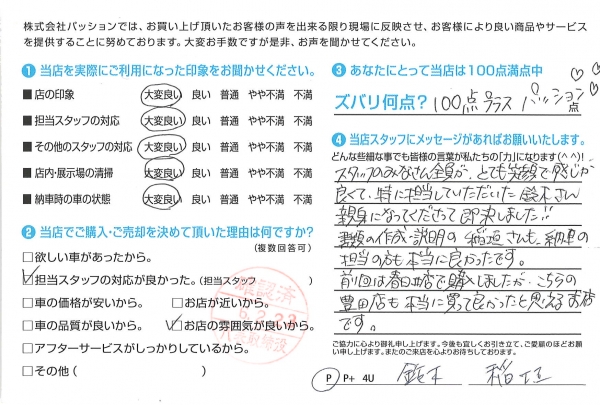 株式会社パッションでは、お買い上げ頂いたお客様の声を出来る限り現場に反映させ、お客様により良い商品やサービス
を提供することに努めております。大変お手数ですが是非、お声を聞かせてください。
① 当店を実際にご利用になった印象をお聞かせください。
■店の印象 大変良い 良い 普通 やや不満 不満
■担当スタッフの対応 大変良い 良い 普通 やや不満 不満
■その他のスタッフの対応 大変良い 良い 普通 やや不満 不満
■店内・展示場の清掃 大変良い 良い 普通 やや不満 不満
■納車時の車の状態 大変良い 良い 普通 やや不満 不満
② 当店でご購入・ご売却を決めて頂いた理由は何ですか?
(複数回答可)
□欲しい車があったから。
☑担当スタッフの対応が良かった。(担当スタッフ )
□車の価格が安いから。 □お店が近いから。
□車の品質が良いから。 ☑お店の雰囲気が良いから。
□アフターサービスがしっかりしているから。
□その他( )
確認済
6.2.22
代表取締役
③ あなたにとって当店は100点満点中
ズバリ何点? 100点 プラス パッション 点
④ 当店スタッフにメッセージがあればお願いいたします。
どんな些細な事でも皆様の言葉が私たちの「力」になります(^^)!
スタッフのみなさん全員が、とても笑顔で感じが
良くて、特に担当していただいた鈴木さん
親身になってくださって即決しました!!
書類の作成・説明の稲垣さんも、納車の
担当の方も本当に良かったです。
前回は春日井店で購入しましたが、こちらの
豊田店も本当に買って良かったと思えるお店
です。
ご協力に心より御礼申し上げます。今後も宜しくお引き立て、ご愛顧のほどお願
い申し上げます。またのご来店を心よりお待ちしております。
P P+ 4U 鈴木 稲垣